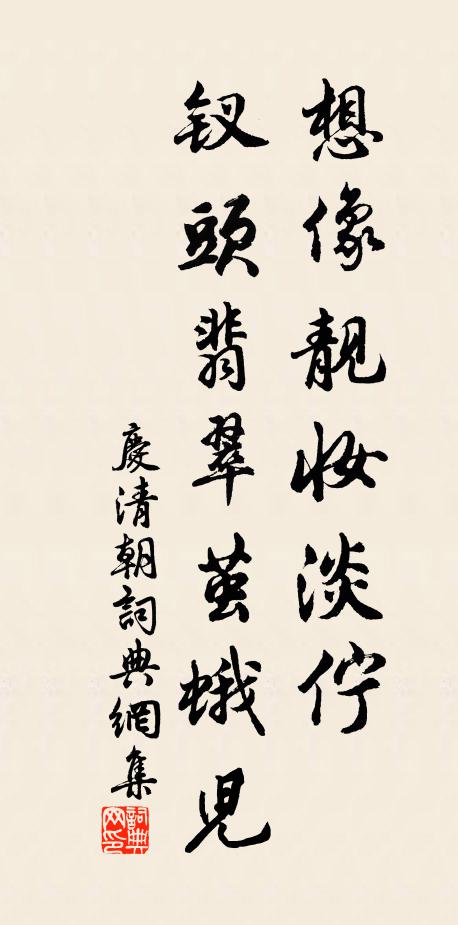 想像靚妝淡佇
釵頭翡翠茧蛾児
慶清朝詞典網集
詞典网印